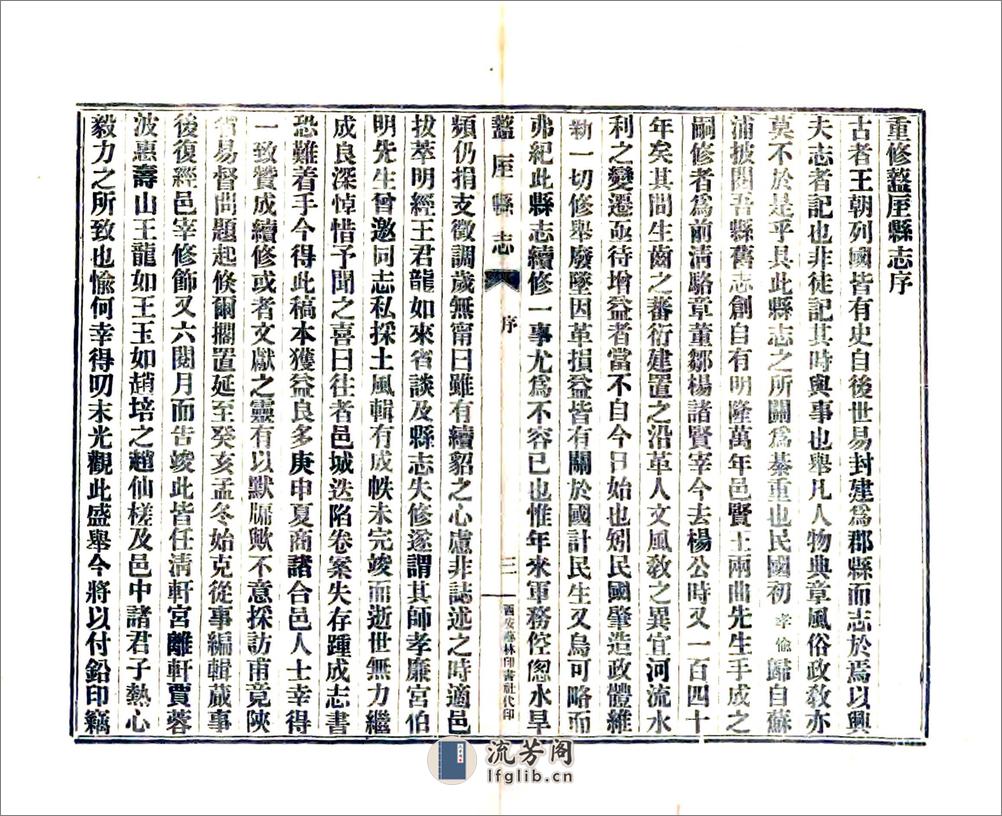 重修盩厔縣志序
古者王朝列國皆有史自後世易封建爲郡縣而志於焉以興
夫志者記也非徒記其時與事也舉凡人物典章風俗政敎亦
莫不於是乎具此縣志之所關爲綦重也民國初孝愉歸自蘇
浦披閱吾縣舊志創自有明隆萬年邑賢王兩曲先生手成之
嗣修者爲前淸駱章董鄒楊諸賢宰今去楊公時又一百四十
年矣其間生齒之蕃衍建置之沿革人文風敎之異宜河流水
利之變遷亟待增益者當不自今日始也矧民國肇造政體維
新一切修舉廢墜因革損益皆有關於國計民生又烏可略而
弗紀此縣志續修一事尤爲不容已也惟年來軍務倥偬水旱
盩厔縣志 序 三 西安藝林印書社代印
頻仍捐支徵調歲無甯日雖有續貂之心慮非誌述之時適邑
拔萃明經王君龍如來省談及縣志失修遂謂其師孝廉宮伯
明先生曾邀同志私採土風輯有成帙未完竣而逝世無力繼
成良深悼惜予聞之喜曰往者邑城迭陷卷案失存踵成志書
恐難着手今得此稿本獲益良多庚申夏商諸合邑人士幸得
一致贊成續修或者文獻之靈有以默牖歟不意採訪甫竟陝
省易督問題起倐爾擱置延至癸亥孟冬始克從事編輯蕆事
後復經邑宰修飾又六閱月而告竣此皆任淸軒宮離軒賈蓉
波惠壽山王龍如王玉如趙培之趙仙槎及邑中諸君子熱心
毅力之所致也愉何幸得叨末光觀此盛舉今將以付鉛印竊
流芳阁
lfglib.cn